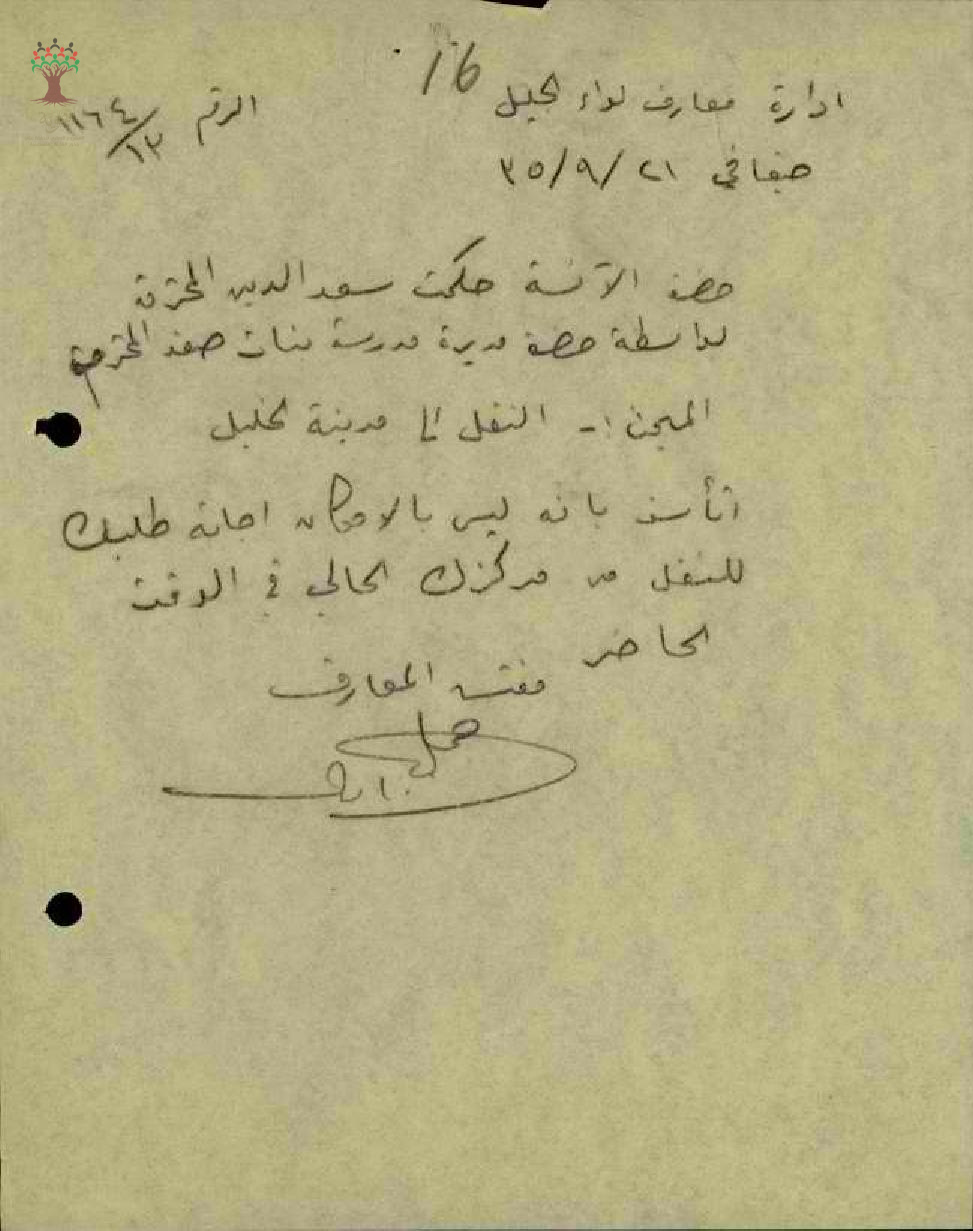 16
ادارة معارف لواء الجليل
الرقم ١١٦٤/١٣
حيفا في ٢١/٩/٣٥
حضرة الآنسة حكمت سعد الدين المحترمة
بواسطة حضرة مديرة مدرسة بنات صفد المحترمة
المبحث :- النقل الى مدينة الخليل
اتأسف بانه ليس بالامكان اجابة طلبك
للنقل من مركزك الحالي في الوقت
الحاضر
مفتش المعارف